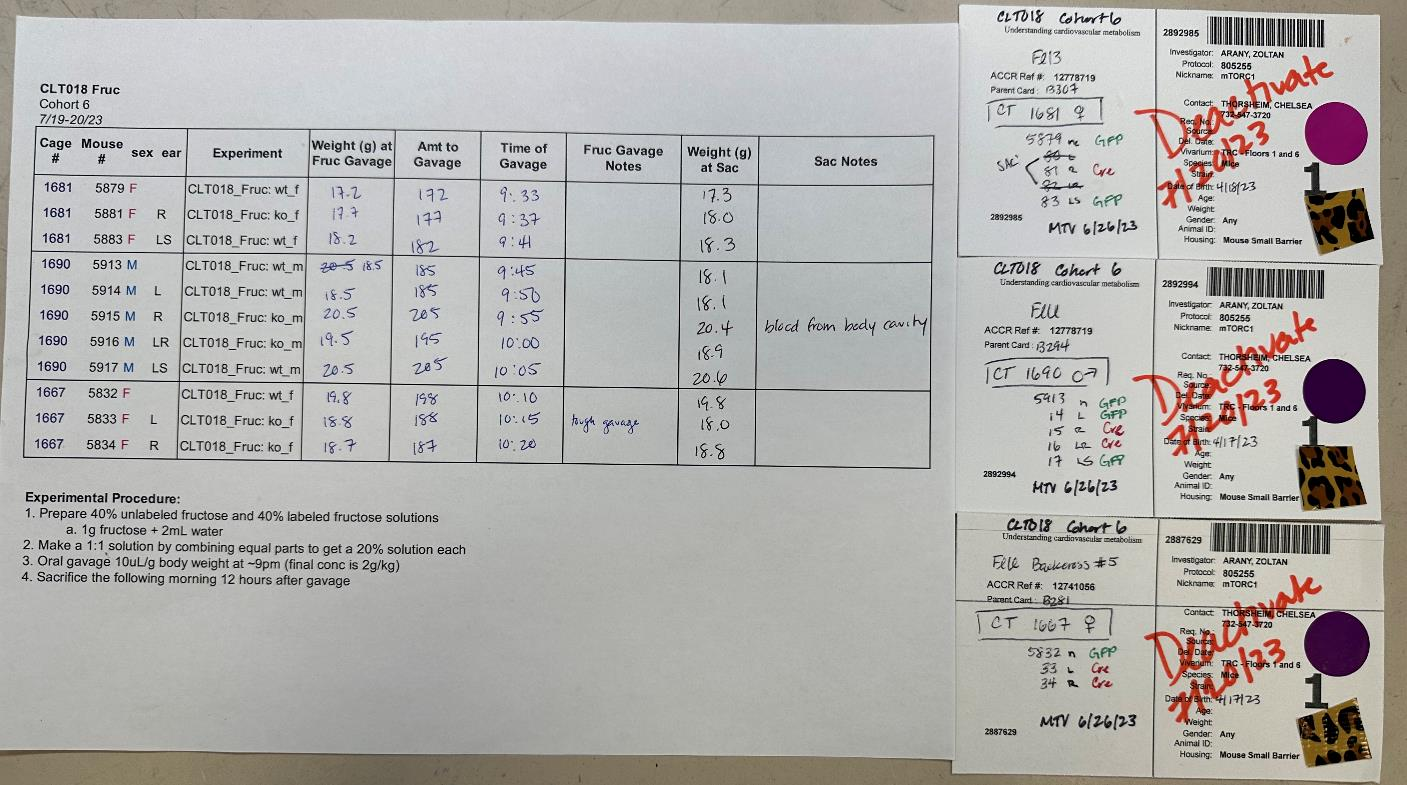 CLT018 Fruc
Cohort 6
7/19-20/23
Cage # Mouse # sex ear Experiment Weight (g) at Fruc Gavage Amt to Gavage Time of Gavage Fruc Gavage Notes Weight (g) at Sac Sac Notes
1681 5879 F CLT018_Fruc: wt_f 17.2 172 9:33 17.3
1681 5881 F R CLT018_Fruc: ko_f 17.7 177 9:37 18.0
1681 5883 F LS CLT018_Fruc: wt_f 18.2 182 9:41 18.3
1690 5913 M CLT018_Fruc: wt_m 20.5 18.5 185 9:45 18.1
1690 5914 M L CLT018_Fruc: wt_m 18.5 185 9:50 18.1
1690 5915 M R CLT018_Fruc: ko_m 20.5 205 9:55 20.4 blood from body cavity
1690 5916 M LR CLT018_Fruc: ko_m 19.5 195 10:00 18.9
1690 5917 M LS CLT018_Fruc: wt_m 20.5 205 10:05 20.6
1667 5832 F CLT018_Fruc: wt_f 19.8 198 10:10 19.8
1667 5833 F L CLT018_Fruc: ko_f 18.8 188 10:15 tough gavage 18.0
1667 5834 F R CLT018_Fruc: ko_f 18.7 187 10:20 18.8
Experimental Procedure:
1. Prepare 40% unlabeled fructose and 40% labeled fructose solutions
a. 1g fructose + 2mL water
2. Make a 1:1 solution by combining equal parts to get a 20% solution each
3. Oral gavage 10uL/g body weight at ~9pm (final conc is 2g/kg)
4. Sacrifice the following morning 12 hours after gavage
CLT018 Cohort 6
Understanding cardiovascular metabolism
ACCR Ref #: 12778719
Parent Card: B307
CT 1681 ♀
5879 n GFP
SAC
81 R Cre
83 LS GFP
2892985
MTV 6/26/23
2892985
Investigator: ARANY, ZOLTAN
Protocol: 805255
Nickname: mTORC1
Contact: THORSHEIM, CHELSEA
732-547-3720
Req. No.:
Source:
Del. Date:
Vivarium: TRC - Floors 1 and 6
Species: Mice
Strain:
Date of Birth: 4/18/23
Age:
Weight:
Gender: Any
Animal ID:
Housing: Mouse Small Barrier
Deactivate
7/20/23
1
CLT018 Cohort 6
Understanding cardiovascular metabolism
ACCR Ref #: 12778719
Parent Card: B294
CT 1690 ♂
5913 n GFP
14 L GFP
15 R Cre
16 LR Cre
17 LS GFP
2892994
MTV 6/26/23
2892994
Investigator: ARANY, ZOLTAN
Protocol: 805255
Nickname: mTORC1
Contact: THORSHEIM, CHELSEA
732-547-3720
Req. No.:
Source:
Del. Date:
Vivarium: TRC - Floors 1 and 6
Species: Mice
Strain:
Date of Birth: 4/17/23
Age:
Weight:
Gender: Any
Animal ID:
Housing: Mouse Small Barrier
Deactivate
7/20/23
1
CLT018 Cohort 6
Understanding cardiovascular metabolism
Backcross #5
ACCR Ref #: 12741056
Parent Card: B281
CT 1667 ♀
5832 n GFP
33 L Cre
34 R Cre
2887629
MTV 6/26/23
2887629
Investigator: ARANY, ZOLTAN
Protocol: 805255
Nickname: mTORC1
Contact: THORSHEIM, CHELSEA
732-547-3720
Req. No.:
Source:
Del. Date:
Vivarium: TRC - Floors 1 and 6
Species: Mice
Strain:
Date of Birth: 4/17/23
Age:
Weight:
Gender: Any
Animal ID:
Housing: Mouse Small Barrier
Deactivate
7/20/23
1